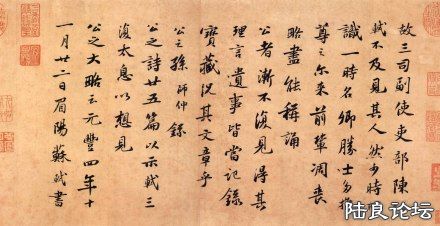 故三司副使吏部陳
軾不及見其人然少時
識一時名卿勝士多推
尊之尔來前輩凋喪
略盡能稱誦
公者漸不復見得其
理言遺事皆當記錄
寶藏況其文章乎
公之孫師仲錄
公之詩廿五篇以示軾三
復太息以想見
公之大略云元豐四年十
一月廿二日眉陽蘇軾書
陆良论坛